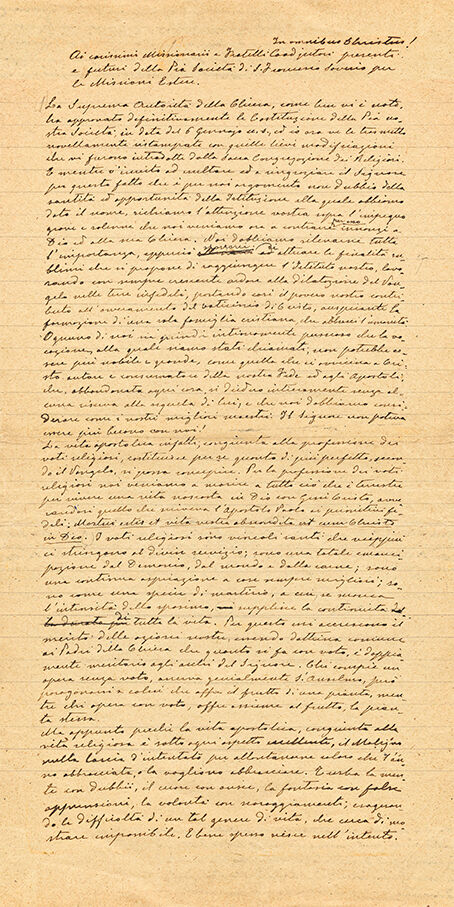 In omnibus Christus!
Ai carissimi Missionarii e Fratelli Coadjutori presenti
e futuri della Pia Società di S. Francesco Saverio per
le Missioni Estere.
La Suprema Autorità della Chiesa, come ben vi è noto,
ha approvato definitivamente le Costituzioni della Pia no
stra Società, in data del 6 Gennajo u.s., ed io ora ve le trasmetto
novellamente ristampate con quelle lievi modificazioni
che vi furono introdotte dalla Sacra Congregazione dei Religiosi.
E mentre v'invito ad esultare ed a ringraziare il Signore
per questo fatto che è per noi argomento non dubbio della
santità ed opportunità della Istituzione alla quale abbiamo
dato il nome, richiamo l'attenzione vostra sopra l'impegno
grave e solenne che noi veniamo ora a contrarre innanzi a
Dio ed alla sua Chiesa. Noi dobbiamo rilevarne tutta
l'importanza, epperciò ad attuare le finalità su
blimi che si propone di raggiungere l'Istituto nostro, lavo
rando con sempre crescente ardore alla dilatazione del Van
gelo nelle terre infedeli, portando così il povero nostro contri
buto all'avveramento del vaticinio di Cristo, auspicante la
formazione di una sola famiglia cristiana, che abbracci l'umanità.
Ognuno di noi sia quindi intimamente persuaso che la vo
cazione, alla quale siamo stati chiamati, non potrebbe es
sere più nobile e grande, come quella che ci avvicina a Cri
sto autore e consumatore della nostra Fede ed agli Apostoli,
che, abbandonata ogni cosa, si diedero intieramente senza al
cuna riserva alla sequela di lui, e che noi dobbiamo consi
derare come i nostri migliori maestri. Il Signore non poteva
essere più buono con noi!
La vita apostolica infatti, congiunta alla professione dei
voti religiosi, costituisce per se quanto di più perfetto, secon
do il Vangelo, si possa concepire. Per la professione dei voti
religiosi noi veniamo a morire a tutto ciò che è terrestre
per vivere una vita nascosta in Dio con Gesù Cristo, avve
randosi quello che scriveva l'Apostolo Paolo ai primitivi fe
deli: Mortui estis et vita vestra abscondita est cum Christo
in Deo. I voti religiosi sono vincoli santi che vieppiù
ci stringono al divin servizio; sono una totale emanci
pazione dal Demonio, dal mondo e dalla carne; sono
una continua aspirazione a cose sempre migliori; so
no come una specie di martirio, a cui, se manca
l'intensità dello spasimo, supplisce la continuità
di tutta la vita. Per questo essi accrescono il
merito delle azioni nostre, essendo dottrina comune
ai Padri della Chiesa che quanto si fa con voto, è doppia
mente meritorio agli occhi del Signore. Chi compie un
opera senza voto, accenna genialmente S. Anselmo, può
paragonarsi a colui che offre il frutto di una pianta, men
tre chi opera con voto, offre assieme al frutto, la pian
ta stessa.
Ma appunto perchè la vita apostolica, congiunta alla
vita religiosa è sotto ogni aspetto eccellente, il Maligno
nulla lascia d'intentato per allontanare coloro che l'han
no abbracciata, o la vogliono abbracciare. E turba la men
te con dubbii, il cuore con ansie, la fantasia con false
apprensioni, la volontà con scoraggiamenti; esageran
do le difficoltà di un tal genere di vita, che cerca di mo
strare impossibile. E bene spesso riesce nell'intento.